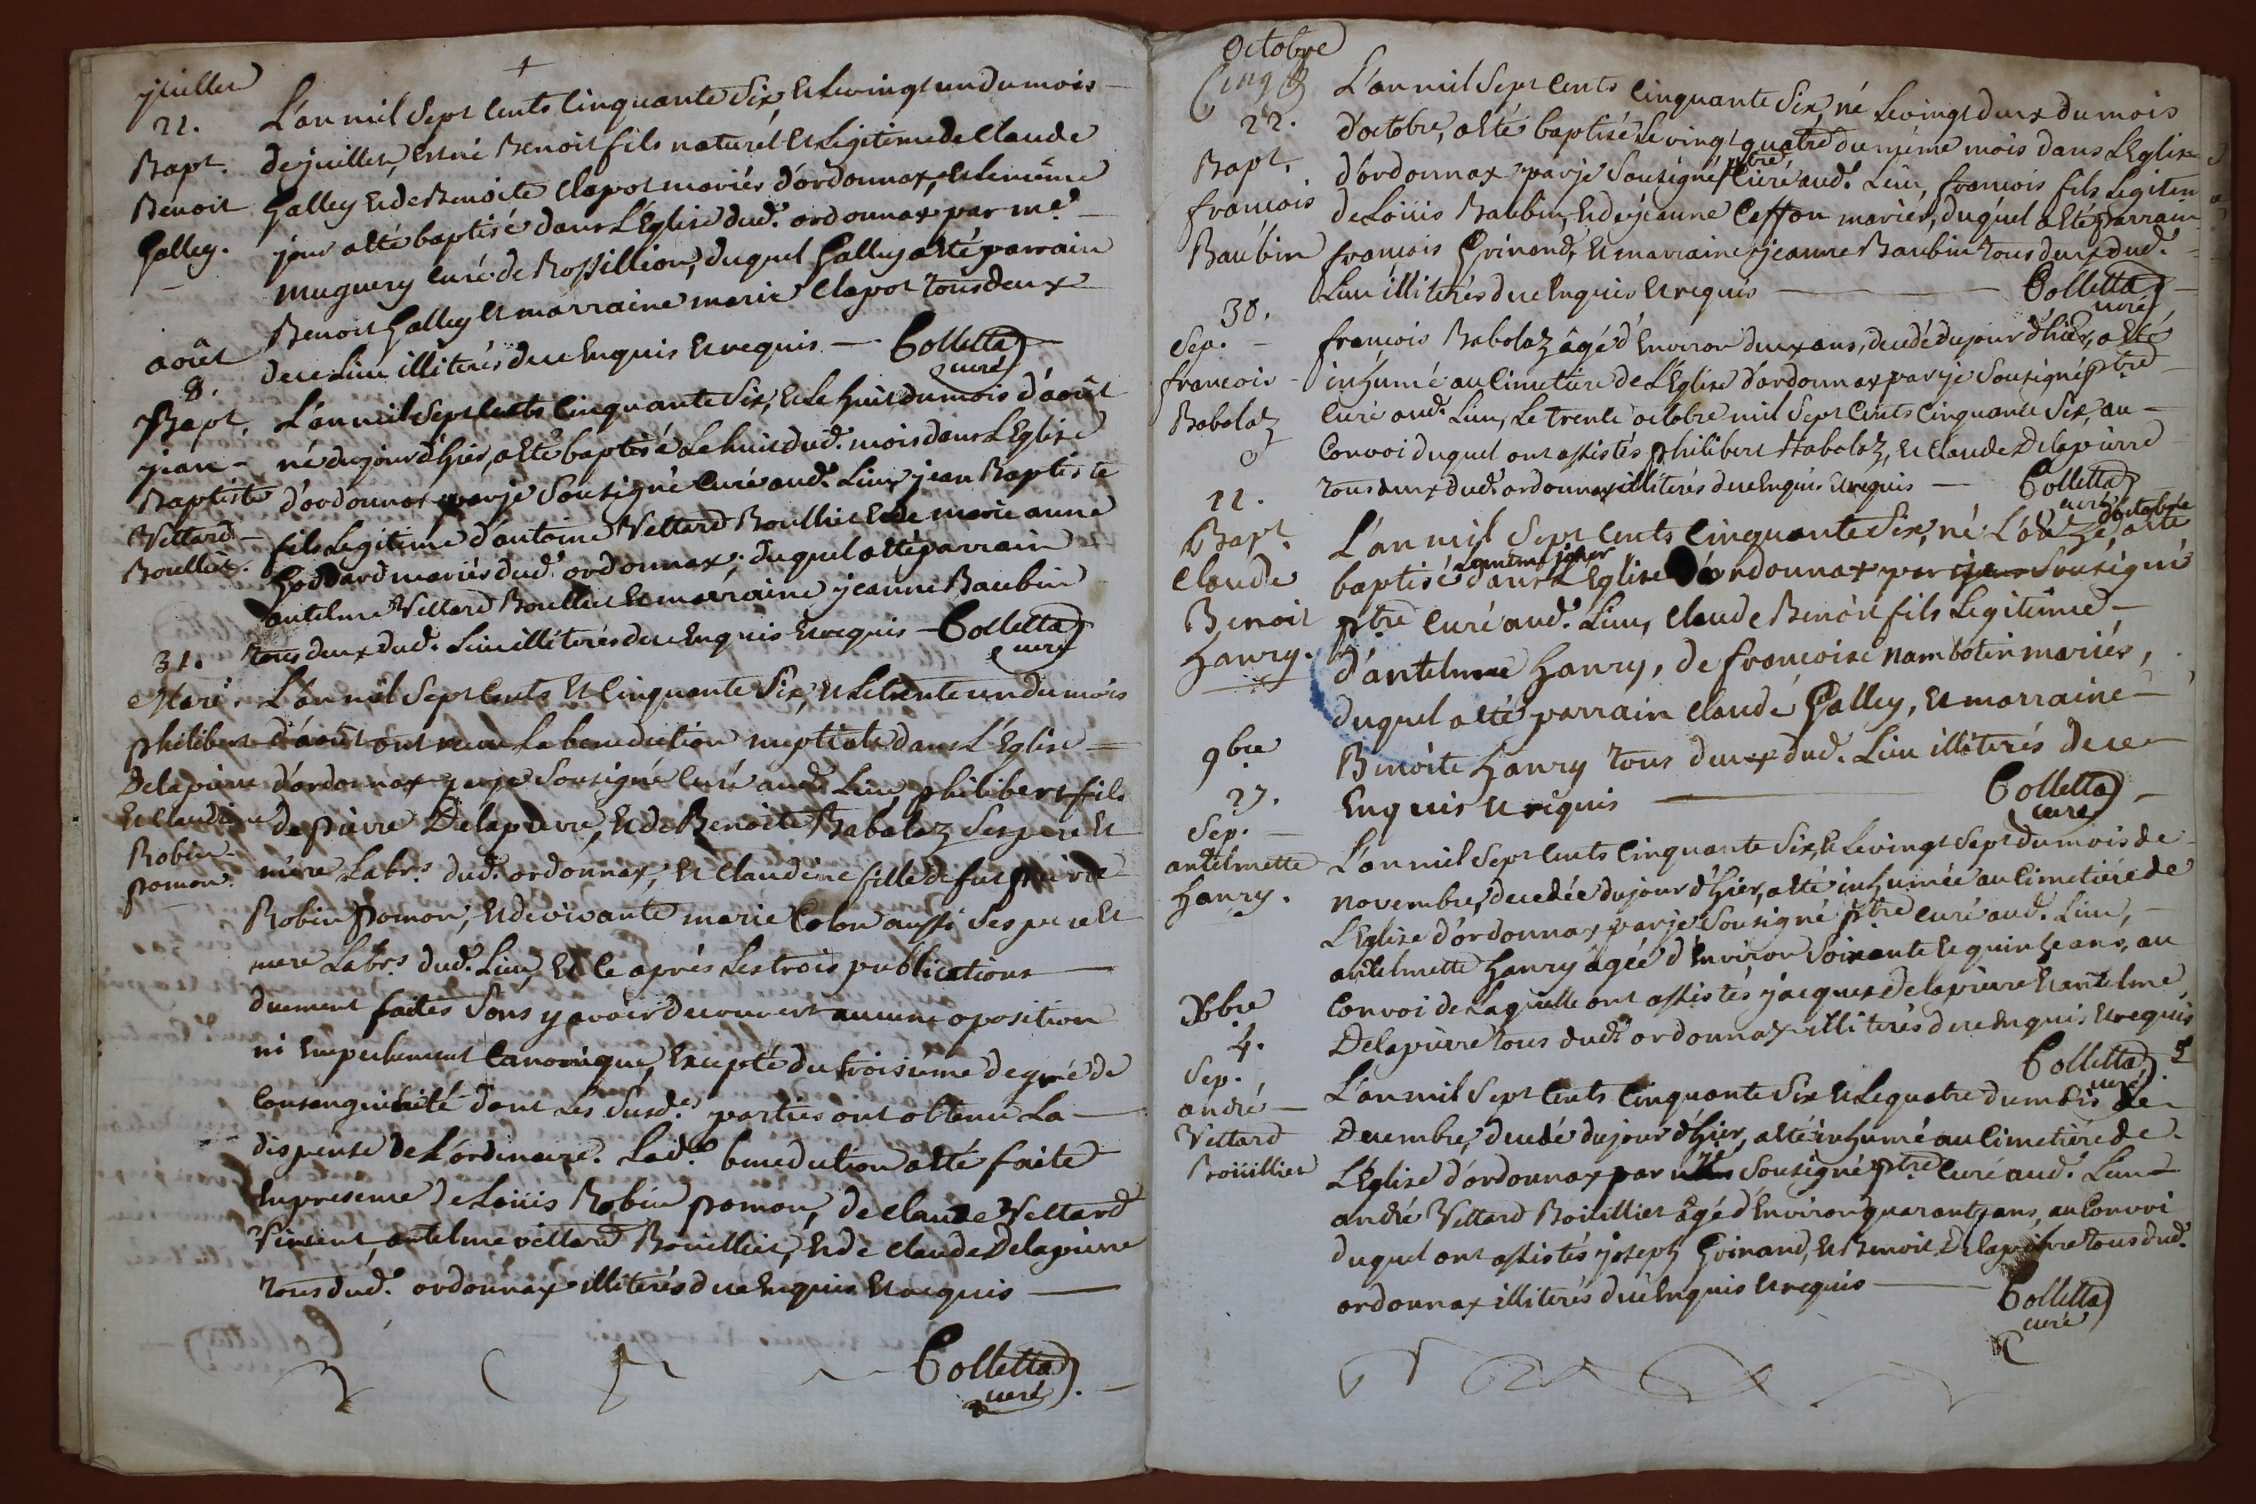 juillet
21.
Bapt.
Benoit
Galley.
L'an mil Sept Cents Cinquante Six et le vingt un du mois
de juillet, est né Benoit fils naturel et Légitime de Claude
Galley et de Benoite Clapot mariés d'ordonnax, et le même
jour a êté baptisé dans L'Eglise dud. ordonnax par me
Muguery Curé de Rossillion, duquel Galley a êté parrain
Benoit Galley et marraine marie Clapot tous deux
de ce Lieu illiterés de ce Enquis et requis — Colletta
curé
août
8.
Bapt.
jean
Baptiste
Vettard
Boullier.
L'an mil Sept Cents Cinquante Six, et le huit du mois d'août
né du jour d'hier, a êté baptisé Le huit dud. mois dans L'Eglise
d'ordonnax par je Sousigné Curé aud. Lieu jean Baptiste
fils Legitime d'antoine Vettard Boullier et de marie anne
Goddard mariés dud. ordonnax, duquel a êté parrain
antelme Vettard Boullier et marraine jeanne Baubin
tous deux dud. Lieu illiterés de ce Enquis et requis — Colletta
curé
31.
Mari.
philibert
Delapierre
et Claudine
Robin
pomon
L'an mil Sept Cents et Cinquante Six, et le trente un du mois
d'août ont recu La benediction nuptiale dans L'Eglise
d'ordonnax par je Sousigné Curé aud. Lieu philibert fils
de pierre Delapierre, et de Benoite Babolaz Ses pere et
mère Labrs. dud. ordonnax, et Claudine fille de fut pierre
Robin pomon, et de vivante marie Colon aussi Ses pere et
mere Labrs. dud. Lieu, Et Ce aprés Les trois publications
duement faites Sans y avoir decouvert aucune oposition
ni Empechement Canonique, Excepté du troisième degré de
Consanguinité dont Les Susd. parties ont obtenu La
dispense de L'ordinaire. Lad. benediction a êté faite
En presence de Loüis Robin pomon, de claude Vettard
Vincent, antelme vettard Bouillier, et de Claude Delapierre
tous dud. ordonnax illiterés de ce Enquis et requis
Colletta
curé
octobre
Cinq
22.
Bapt.
françois
Baubin
L'an mil Sept Cents Cinquante Six, né Le vingt deux du mois
d'octobre, a êté baptisé Le vingt quatre du même mois dans L'Eglise
d'ordonnax par je Sousigné ptre Curé aud. Lieu, francois fils Legitim
de Loüis Baubin, et de jeanne Ceffon mariés, duquel a êté parrain
francois Grinand, et marraine jeanne Baubin tous deux dud.
Lieu illiterés de ce Enquis et requis — Colletta
curé
30.
Sep.
francois
Babolaz
francois Babolaz âgé d'Environ deux ans, decedé du jour d'hier, a êté
inhumé au Cimetiere de L'Eglise d'ordonnax par je Sousigné ptre
Curé aud. Lieu, Le trente octobre mil Sept Cents Cinquante Six, au
Convoi duquel ont assistés philibert Babolaz, et Claude Delapierre
tous deux dud. ordonnax illiterés de ce Enquis et requis — Colletta
curé
11.
Bapt.
Claude
Benoit
hanry.
L'an mil Sept Cents Cinquante Six, né L'onze d'octobre, a été
baptisé Le même jour dans L'Eglise d'ordonnax par je Sousigné
ptre Curé aud. Lieu, Claude Benoit fils Legitime
d'antelme hanry, de francoise nambotin mariés,
duquel a êté parrain Claude Galley, et marraine
Benoite hanry tous deux dud. Lieu illiterés de ce
Enquis et requis — Colletta
curé
9bre
27.
Sep.
antelmette
hanry.
L'an mil Sept Cents Cinquante Six, et Le vingt Sept du mois de
novembre, decedée du jour d'hier, a êté inhumée au Cimetiére de
L'Eglise d'ordonnax par je Sousigné ptre curé aud. Lieu,
antelmette hanry âgée d'Environ Soixante et quinze ans, au
Convoi de Laquelle ont assistés jacques Delapierre et antelme
Delapierre tous dud. ordonnax illiterés de ce Enquis et requis
Colletta
curé
Xbre
4.
Sep.
andré
Vettard
Boüillier
L'an mil Sept Cents Cinquante Six et Le quatre du mois de
Decembre, decedé du jour d'hier, a êté inhumé au Cimetiére de
L'Eglise d'ordonnax par je Sousigné ptre Curé aud. Lieu
andré Vettard Boüillier âgé d'Environ quarante ans, au Convoi
duquel ont assistés joseph Grinand, et Benoit Delapierre tous dud.
ordonnax illiterés de ce Enquis et requis — Colletta
curé